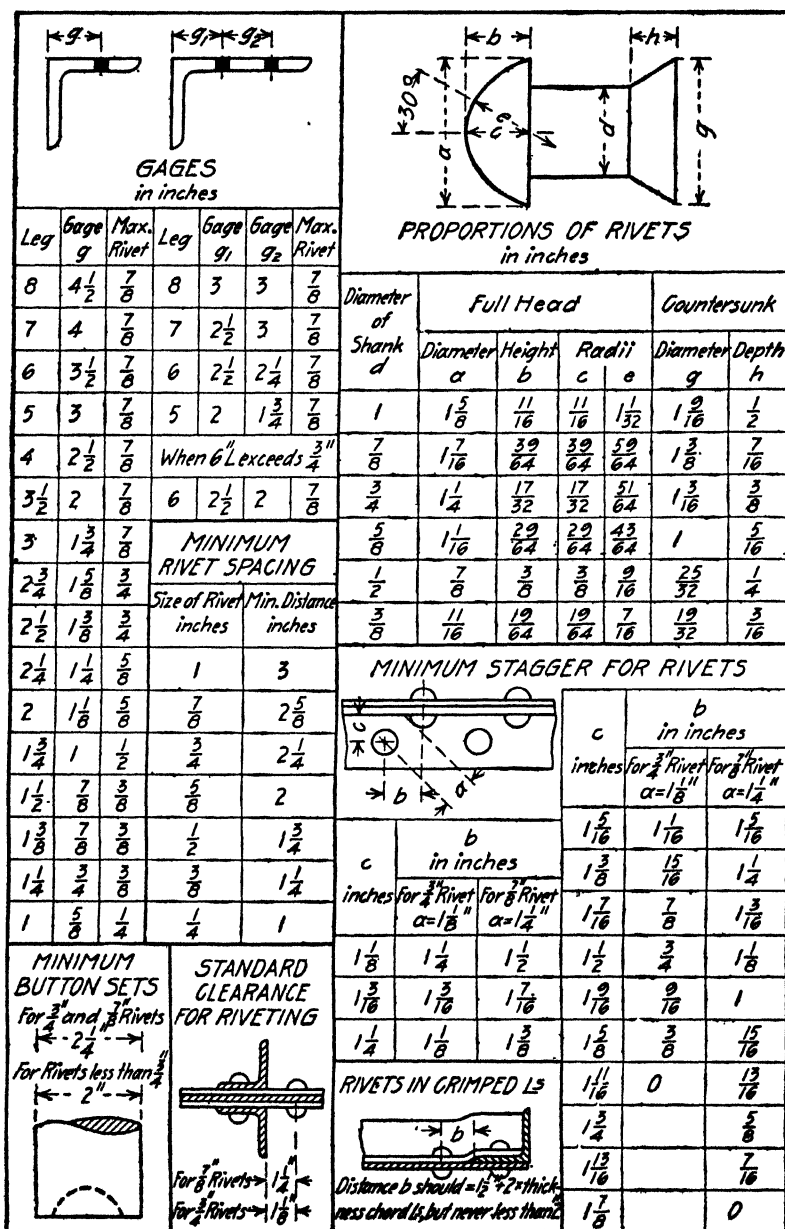 g g₁ g₂
GAGES
in inches
Leg Gage g Max. Rivet Leg Gage g₁ Gage g₂ Max. Rivet
8 4 1/2 7/8 8 3 3 7/8
7 4 7/8 7 2 1/2 3 7/8
6 3 1/2 7/8 6 2 1/2 2 1/4 7/8
5 3 7/8 5 2 1 3/4 7/8
4 2 1/2 7/8 When 6"L exceeds 3/4"
3 1/2 2 7/8 6 2 1/2 2 7/8
3 1 3/4 7/8
2 3/4 1 5/8 3/4
2 1/2 1 3/8 3/4
2 1/4 1 1/4 5/8
2 1 1/8 5/8
1 3/4 1 1/2
1 1/2 7/8 3/8
1 3/8 7/8 3/8
1 1/4 3/4 3/8
1 5/8 1/4
MINIMUM
RIVET SPACING
Size of Rivet Min. Distance
inches inches
1 3
7/8 2 5/8
3/4 2 1/4
5/8 2
1/2 1 3/4
3/8 1 1/4
1/4 1
MINIMUM
BUTTON SETS
For 3/4" and 7/8" Rivets
2 1/4"
For Rivets less than 3/4"
2"
STANDARD
CLEARANCE
FOR RIVETING
For 7/8" Rivets 1 1/4"
For 3/4" Rivets 1 1/8"
b h
30° a e c d g
PROPORTIONS OF RIVETS
in inches
Diameter of Shank d Full Head Countersunk
Diameter a Height b Radii c e Diameter g Depth h
1 1 5/8 11/16 11/16 1 1/32 1 9/16 1/2
7/8 1 7/16 39/64 39/64 59/64 1 3/8 7/16
3/4 1 1/4 17/32 17/32 51/64 1 3/16 3/8
5/8 1 1/16 29/64 29/64 43/64 1 5/16
1/2 7/8 3/8 3/8 9/16 25/32 1/4
3/8 11/16 19/64 19/64 7/16 19/32 3/16
MINIMUM STAGGER FOR RIVETS
c b a
c inches b in inches
For 3/4" Rivet a=1 1/8" For 7/8" Rivet a=1 1/4"
1 1/8 1 1/4 1 1/2
1 3/16 1 3/16 1 7/16
1 1/4 1 1/8 1 3/8
c inches b in inches
For 3/4" Rivet a=1 1/8" For 7/8" Rivet a=1 1/4"
1 5/16 1 1/16 1 5/16
1 3/8 15/16 1 1/4
1 7/16 7/8 1 3/16
1 1/2 3/4 1 1/8
1 9/16 9/16 1
1 5/8 3/8 15/16
1 11/16 0 13/16
1 3/4 5/8
1 13/16 7/16
1 7/8 0
RIVETS IN CRIMPED Ls
b
Distance b should = 1 1/2" + 2 × thick-
ness chord Ls, but never less than 2"